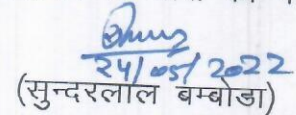 24/05/2022
(सुन्दरलाल बम्बोडा)